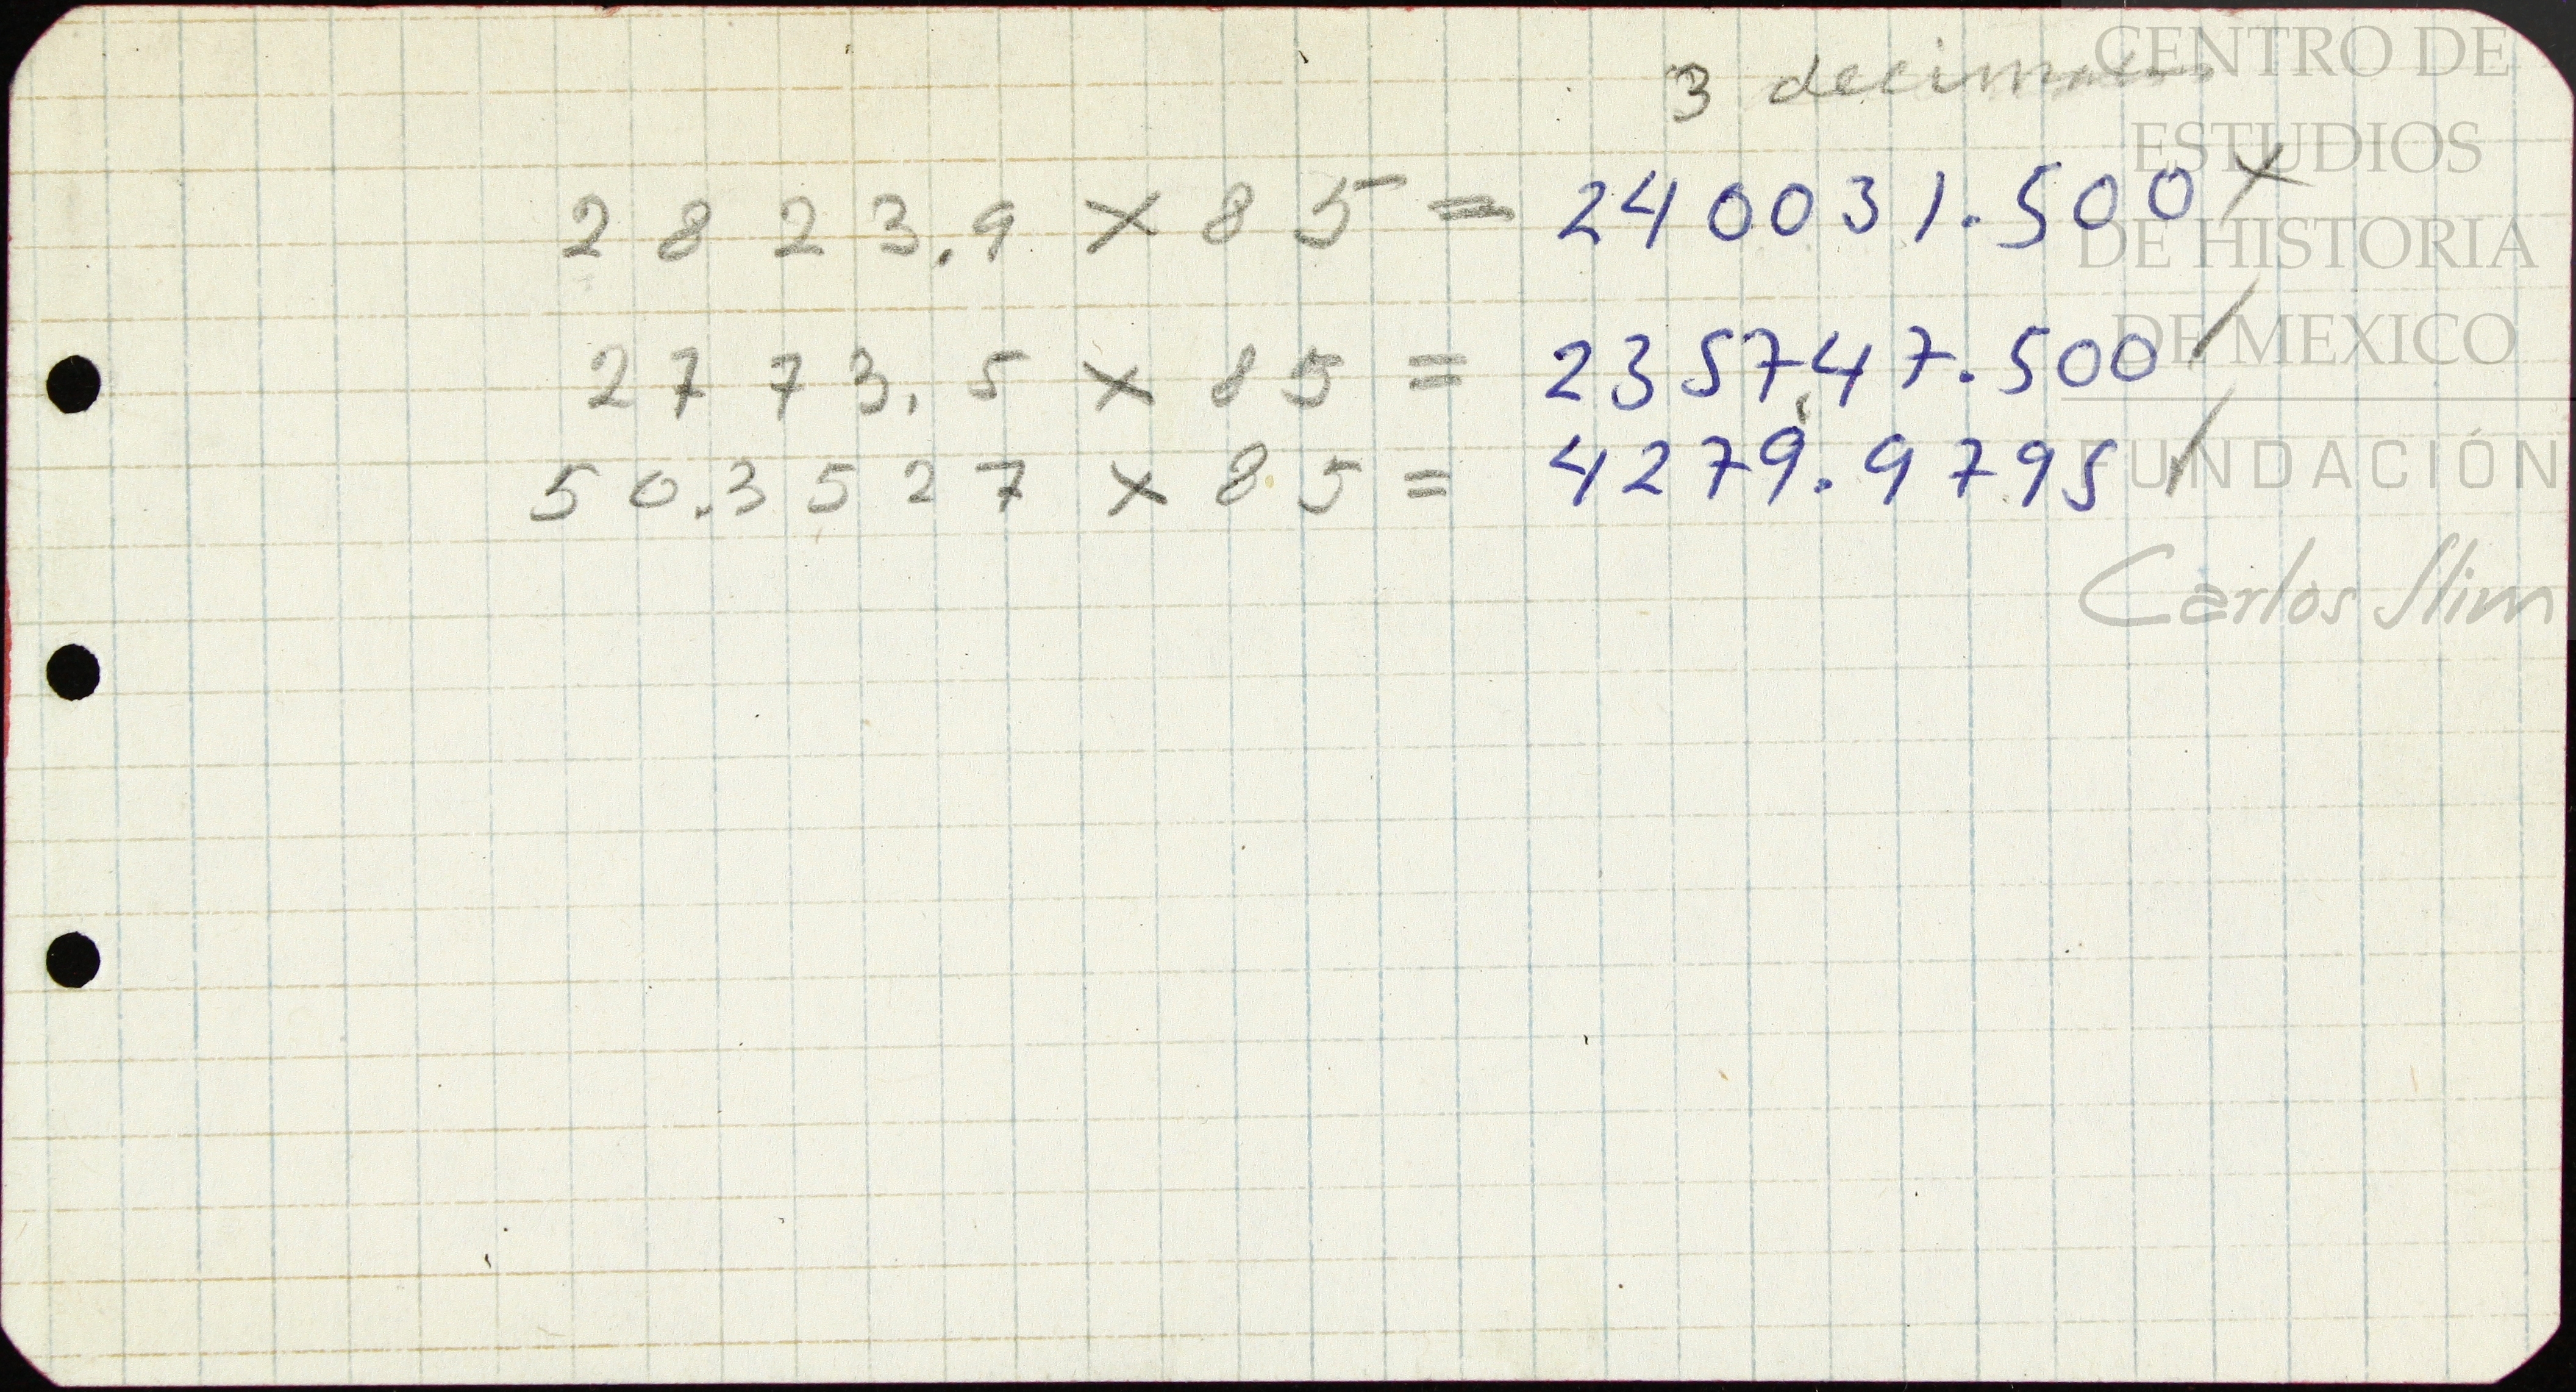 3 decimales
2823.9 x 85 = 240031.500 x
2773.5 x 85 = 235747.500 /
50.3527 x 85 = 4279.9795 /
CENTRO DE
ESTUDIOS
DE HISTORIA
DE MEXICO
FUNDACIÓN
Carlos Slim